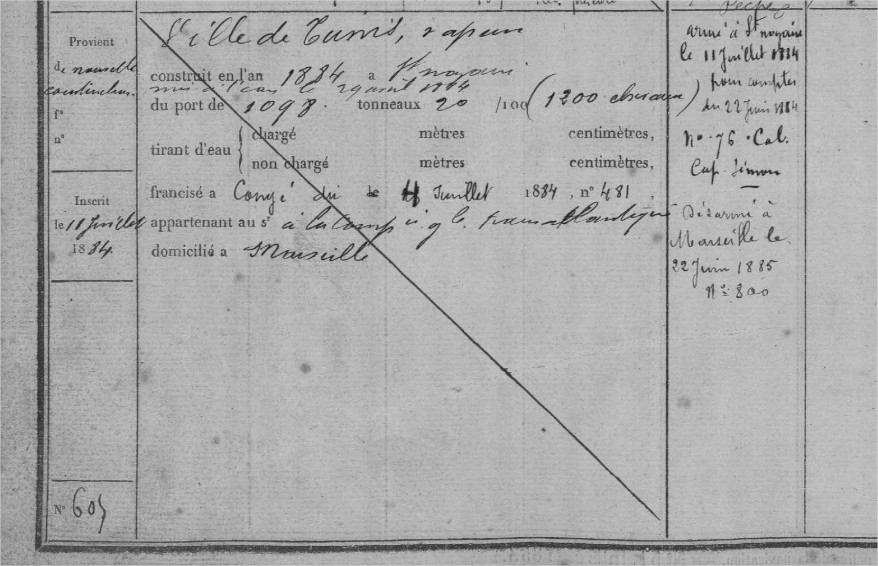 Provient
de nouvelle
construction.
f°
n°
Inscrit
le 11 Juillet
1884.
N° 605
Ville de Tunis, vapeur
construit en l'an 1884 a St nazaire
mis à l'eau le 29 avril 1884
du port de 1098. tonneaux 20 /100 (1200 chevaux)
tirant d'eau { chargé mètres centimètres,
non chargé mètres centimètres,
francisé a Congé du le 11 Juillet 1884, n° 481.
appartenant au sr à la Comp ie gle. transatlantique
domicilié a Marseille
armé à St nazaire
le 11 Juillet 1884
pour compter
du 22 Juin 1884
No. 76. Cal.
Cap. Simon
Désarmé à
Marseille le
22 Juin 1885
No 800